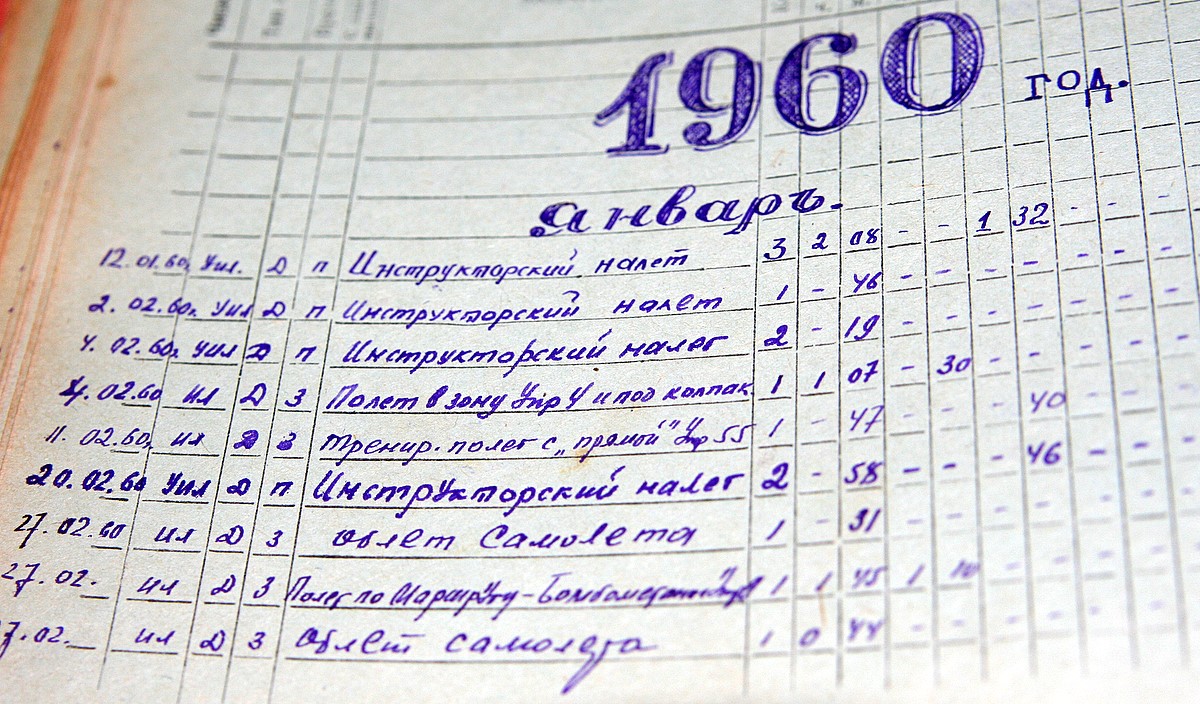 1960 год.
январь.
12.01.60г Уил. Д п Инструкторский налет 3 2 08 - - 1 32 - - -
2.02.60г. Уил Д п Инструкторский налет 1 - 46 - - - - - - -
4.02.60г Уил Д п Инструкторский налет 2 - 19 - - - - - - -
4.02.60 ил Д З Полет в зону Упр 4 и под колпак. 1 1 07 - 30 - - - - -
11.02.60г ил Д З Тренир. полет с „прямой" Упр 55 1 - 47 - - - 40 - - -
20.02.60 Уил Д п Инструкторский налет 2 - 58 - - - 46 - - -
27.02.60 ил Д З облет самолета 1 - 31 - - - - - - -
27.02. ил Д З Полет по маршруту - 1 1 45 1 10 - - - -
7.02. ил Д З облет самолета 1 0 44 - - - - - -